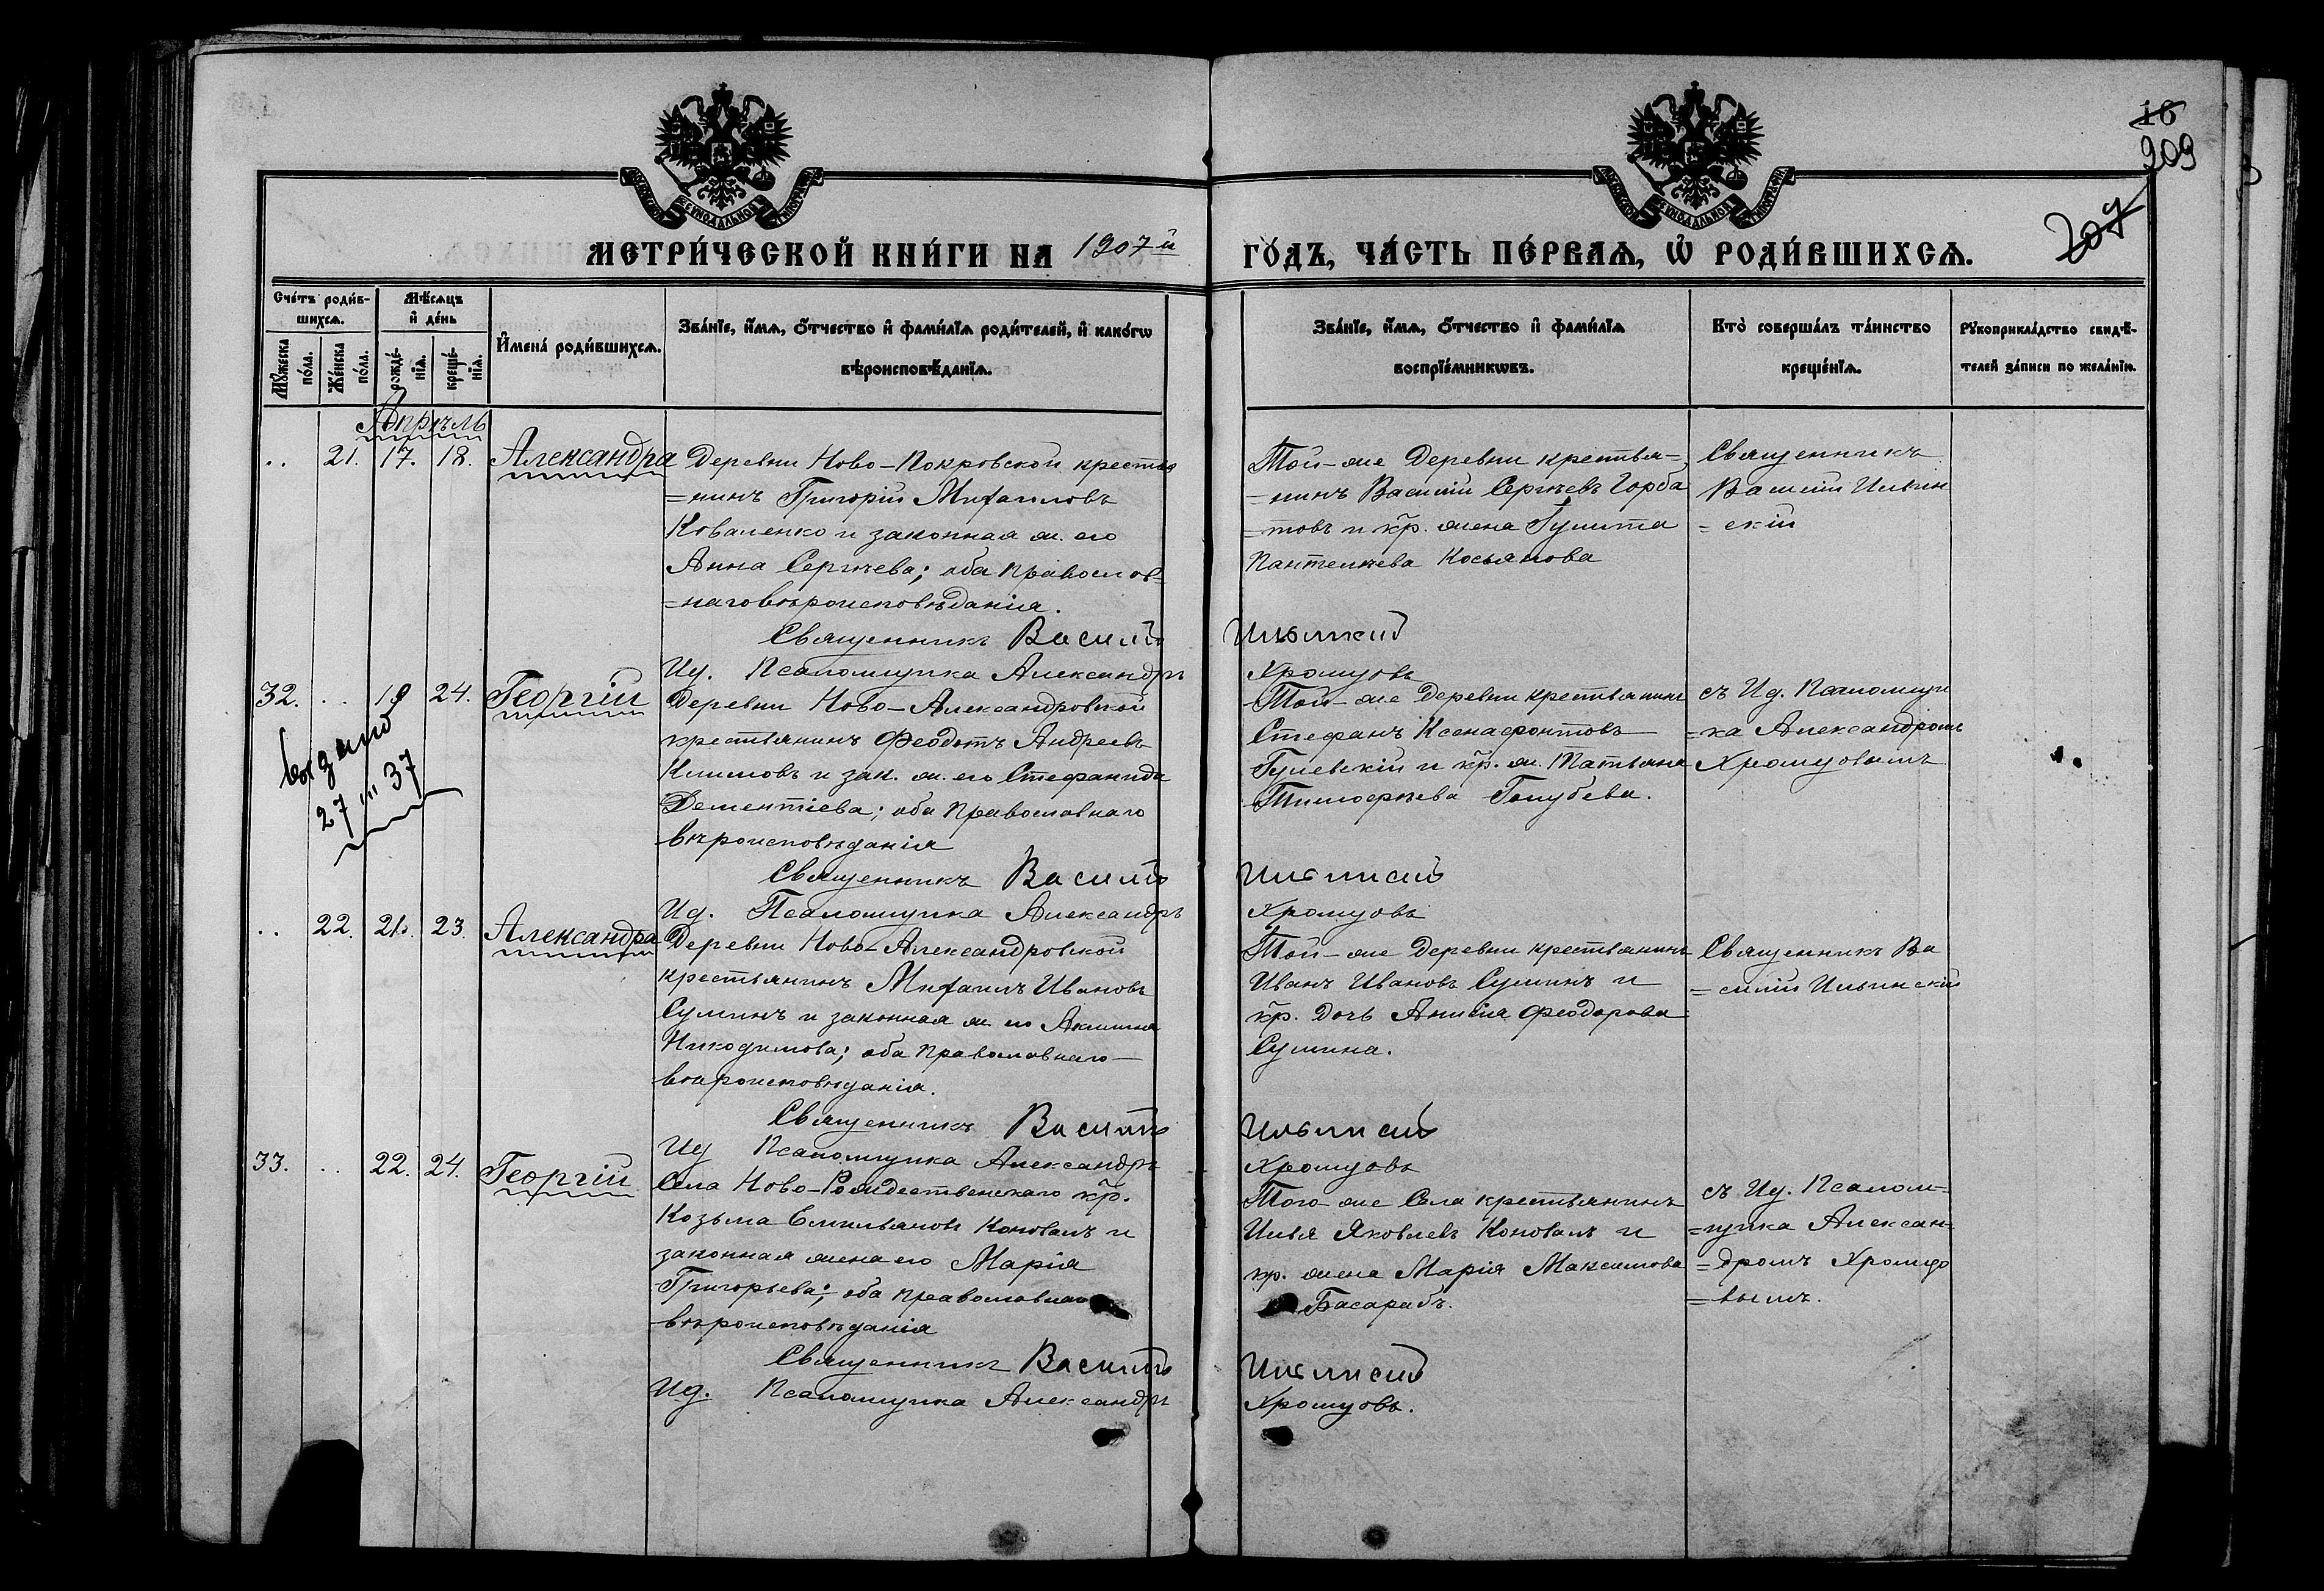 16
209
207
МОСКОВСКОЙ СѴНОДАЛЬНОЙ ТИПОГРАФІИ
МОСКОВСКОЙ СѴНОДАЛЬНОЙ ТИПОГРАФІИ
МЕТРИ́ЧЕСКОЙ КНИ́ГИ НА 1907 й
ГО́ДЪ, ЧА́СТЬ ПЕ́РВАѦ, Ѡ҆ РОДИ́ВШИХСѦ.
Сче́тъ роди́в-
шихсѧ.
Мѣ́сѧцъ
и҆ де́нь
Мꙋ́жеска
по́ла.
Же́нска
по́ла.
рожде́-
нїѧ.
креще́-
нїѧ.
И҆мена̀ роди́вшихсѧ.
Зва́нїе, и҆́мѧ, ѻ҆́тчество и҆ фами́лїѧ роди́телей, и҆ како́гѡ
вѣроисповѣ́данїѧ.
Зва́нїе, и҆́мѧ, ѻ҆́тчество и҆ фами́лїѧ
воспрїе́мникѡвъ.
Кто̀ соверша́лъ та́инство
креще́нїѧ.
Рꙋкоприкла́дство свидѣ́-
телей за́писи по жела́нїю.
Апрѣль
.. 21. 17. 18. Александра
Деревни Ново-Покровской крестья
=нинъ Григорій Михаиловъ
Коваленко и законная ж. его
Анна Сергѣева; оба православ=
=наго вѣроисповѣданія.
Священникъ Василій
Ид. Псаломщика Александръ
Той-же Деревни крестья-
=нинъ Василій Сергѣевъ Горба
=товъ и кр. жена Гулита
Пантелѣева Косьянова
Ильинскій
Хромцовъ
Священникъ
Василій Ильин
=скій
32. .. 19 24. Георгій
выдано
27 III 37
Деревни Ново-Александровской
крестьянинъ Феодотъ Андреевъ
Климовъ и зак. ж. его Стефанида
Дементіева; оба православнаго
вѣроисповѣданія
Священникъ Василій
Ид. Псаломщика Александръ
Той-же Деревни крестьянинъ
Стефанъ Ксенафонтовъ
Гулевскій и кр. ж. Татьяна
Тимофѣева Голубева.
Ильинскій
Хромцовъ
съ Ид. Псаломщи
=ка Александромъ
Хромцовымъ
.. 22. 21. 23. Александра
Деревни Ново-Александровской
крестьянинъ Михаилъ Ивановъ
Суминъ и законная ж. его Акилина
Никодимова; оба православнаго
вѣроисповѣданія.
Священникъ Василій
Ид Псаломщика Александръ
Той-же Деревни крестьянинъ
Иванъ Ивановъ Суминъ и
кр. дочь Анисія Феодорова
Сумина.
Ильинскій
Хромцовъ
Священникъ Ва
=силій Ильинскій
33. .. 22. 24. Георгій
Села Ново-Рождественскаго кр.
Козьма Емильяновъ Коновалъ и
законная жена его Марія
Григорьева; оба православнаго
вѣроисповѣданія
Священникъ Василій
Ид. Псаломщика Александръ
Того-же Села крестьянинъ
Илья Яковлевъ Коновалъ и
кр. жена Марія Максимова
Басарабъ.
Ильинскій
Хромцовъ.
съ Ид. Псалом-
=щика Алексан-
=дромъ Хромцо
=вымъ.